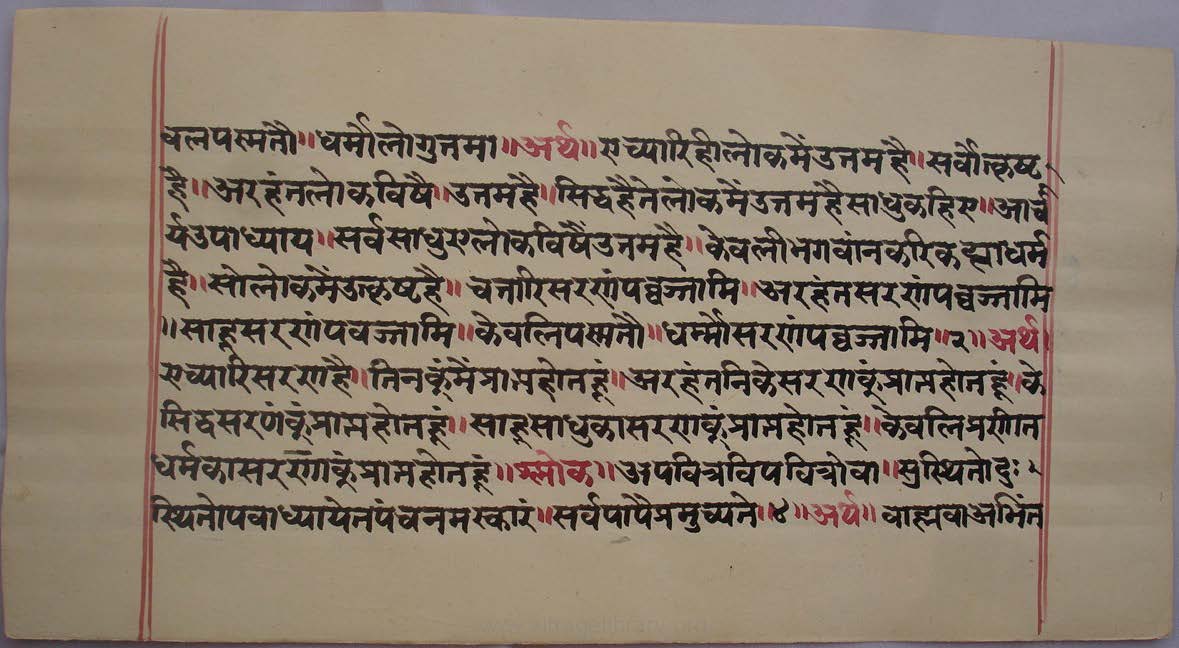 वलपस्मतौ॥धर्मोलोगुत्तमा॥अर्थ॥एच्यारिहीलोकमेंउत्तमहै॥सर्वोत्कृष्ट
है॥अरहंतलोकविषै॥उत्तमहै॥सिद्धहैतेलोकमेंउत्तमहैसाधुकहिए॥आचर्
र्यउपाध्याय॥सर्वसाधुएलोकविषैंउत्तमहै॥केवलीभगवांनकरिकह्याधर्म
है॥सोलोकमेंउत्कृष्टहै॥चत्तारिसरणंपव्वज्जामि॥अरहंतसरणंपव्वज्जामि
॥साहूसरणंपवज्जामि॥केवलिपस्मतौ॥धर्म्मोसरणंपव्वज्जामि॥२॥अर्थ।
एच्यारिसरणहै॥तिनकूंमैंप्राप्तहोतहूं॥अरहंतनिकेसरणकुंप्राप्तहोतहूं॥के
सिद्धसरणंकुंप्राप्तहोतहूं॥साहूसाधुकासरणकुंप्राप्तहोतहूं॥केवलिप्रणीत
धर्मकासरणकुंप्राप्तहोतहूं॥श्लोक॥अपवित्रविपवित्रोवा॥सुस्थितोदुः
स्थितोपवाध्यायेतपंचनमस्कारं॥सर्वपापैप्रमुच्यते॥४॥अर्थ॥वाह्मवाअभिंत
www.jinagelibrary.org